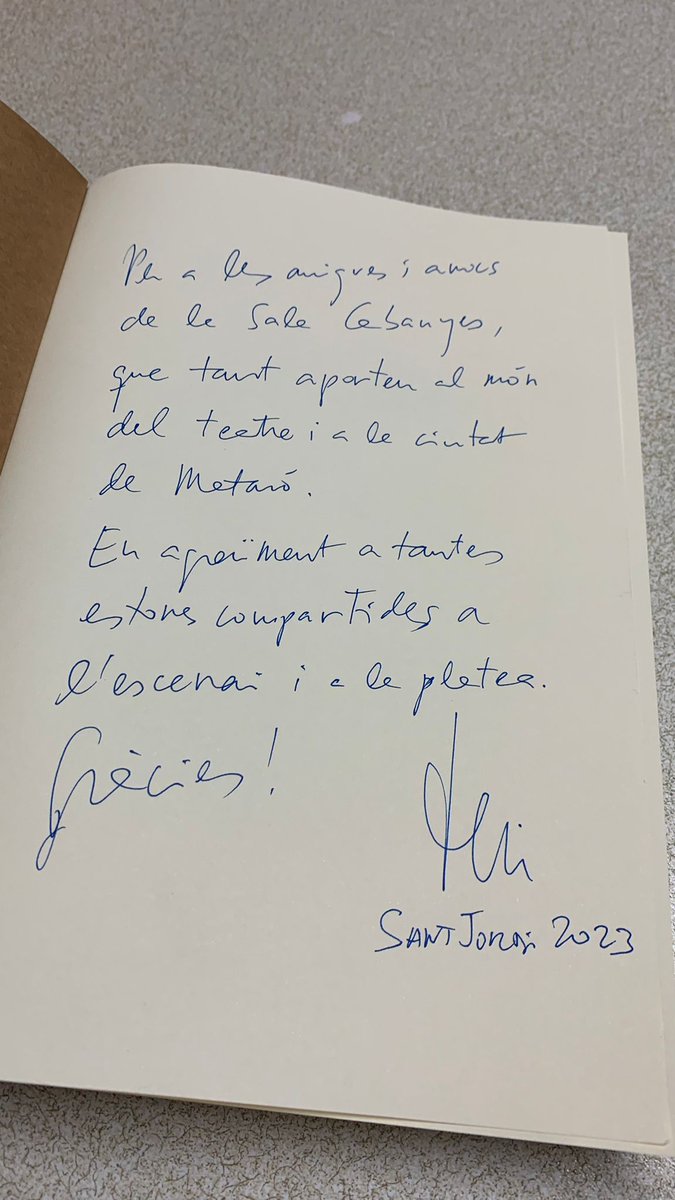 Per a les amigues i amics
de la Sala Cabanyes,
que tant aporten al món
del teatre i a la ciutat
de Mataró.
En agraïment a tantes
estones compartides a
l'escenari i a la platea.
Gràcies!
SANT JORDI 2023